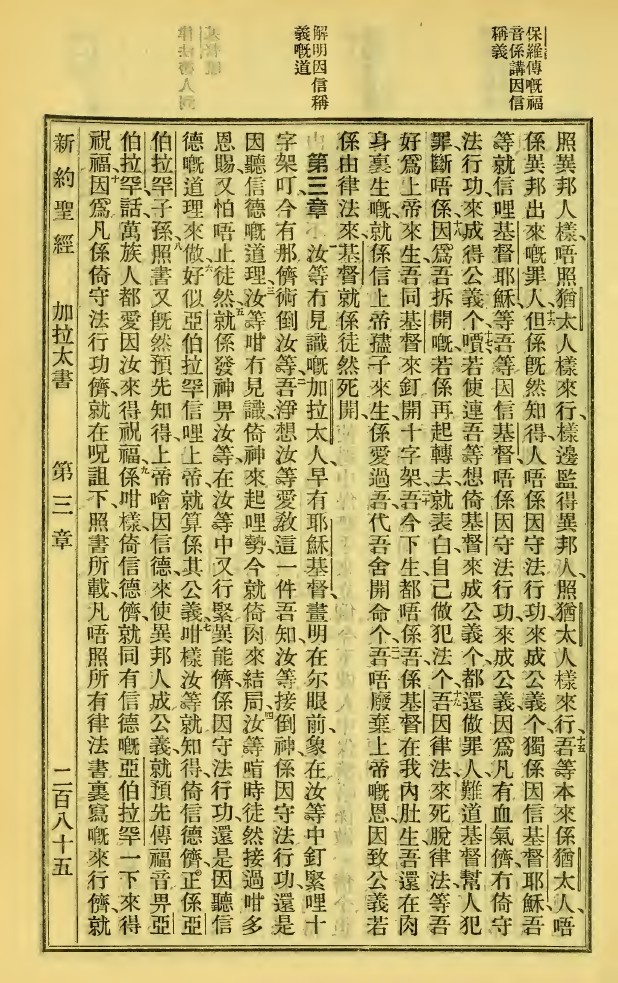 保羅傳嘅福
音係講因信
稱義
解明因信稱
義嘅道
照異邦人樣、唔照猶太人樣來行、樣邊監得異邦人、照猶太人樣來行、十五吾等本來係猶太人、唔
係異邦出來嘅罪人、十六但係既然知得、人唔係因守法行功、來成公義个、獨係因信基督耶穌、吾
等就信哩基督耶穌、吾等因信基督、唔係因守法行功、來成公義、因爲凡有血氣儕、冇倚守
法行功、來成得公義个、十七嘳若使連吾等想倚基督、來成公義个、都還做罪人、難道基督幫人犯
罪、斷唔係、十八因爲吾拆開嘅、若係再起轉去、就表白自己做犯法个、十九吾因律法、來死脫律法、等吾
好爲上帝來生、吾同基督來釘開十字架、二十吾今下生、都唔係吾、係基督在我內肚生、吾還在肉
身裏生嘅、就係信上帝孻子來生、係愛過吾、代吾舍開命个、二一吾唔廢棄上帝嘅恩、因致公義若
係由律法來、基督就係徒然死開、
第三章 一汝等冇見識嘅加拉太人、早有耶穌基督、畫明在尔眼前、象在汝等中釘緊哩十
字架叮、今有那儕術倒汝等、二吾淨想汝等愛教這一件、吾知汝等接倒神、係因守法行功、還是
因聽信德嘅道理、三汝等咁冇見識、倚神來起哩勢、今就倚肉來結局、四汝等喑時徒然接過咁多
恩賜、又怕唔止徒然、五就係發神畀汝等、在汝等中、又行緊異能儕、係因守法行功、還是因聽信
德嘅道理來做、六好似亞伯拉罕信哩上帝、就算係其公義、七咁樣汝等就知得、倚信德儕、正係亞
伯拉罕子孫、八照書又既然預先知得、上帝噲因信德、來使異邦人成公義、就預先傳福音畀亞
伯拉罕話、萬族人都愛因汝來得祝福、九係咁樣、倚信德儕、就同有信德嘅亞伯拉罕一下來得
祝福、十因爲凡係倚守法行功儕、就在呪詛下、照書所載、凡唔照所有律法書裏寫嘅來行儕、就
新約聖經 加拉太書 第三章 二百八十五